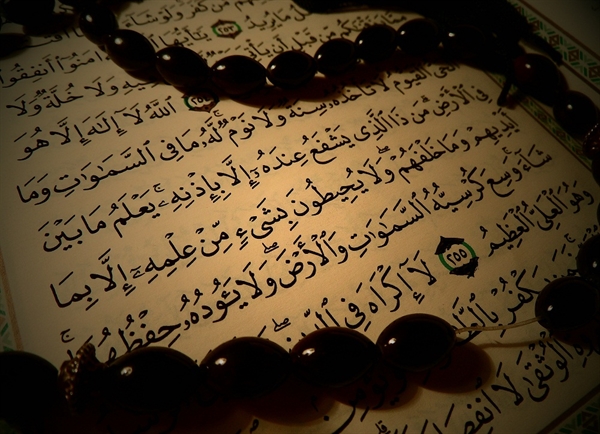 كَفَرَ وَلَوْ شَاءَ
مَا يُرِيدُ ٢٥٣ ءَامَنُوٓا۟ أَنفِقُوا۟
مِّن قَبْلِ أَن فِيهِ وَلَا خُلَّةٌ وَلَا
٢٥٤ ٱللَّهُ لَآ إِلَٰهَ إِلَّا هُوَ
ٱلْقَيُّومُ لَا تَأْخُذُهُۥ سِنَةٌ وَلَا نَوْمٌ لَّهُۥ مَا فِى ٱلسَّمَٰوَٰتِ وَمَا
فِى ٱلْأَرْضِ مَن ذَا ٱلَّذِى يَشْفَعُ عِندَهُۥٓ إِلَّا بِإِذْنِهِۦ يَعْلَمُ مَا بَيْنَ
أَيْدِيهِمْ وَمَا خَلْفَهُمْ وَلَا يُحِيطُونَ بِشَىْءٍ مِّنْ عِلْمِهِۦٓ إِلَّا بِمَا
شَآءَ وَسِعَ كُرْسِيُّهُ ٱلسَّمَٰوَٰتِ وَٱلْأَرْضَ وَلَا يَـُٔودُهُۥ حِفْظُهُمَا
وَهُوَ ٱلْعَلِىُّ ٱلْعَظِيمُ ٢٥٥ لَآ إِكْرَاهَ فِى
يَكْفُرْ
ٱلْوُثْقَىٰ لَا ٱنفِصَامَ